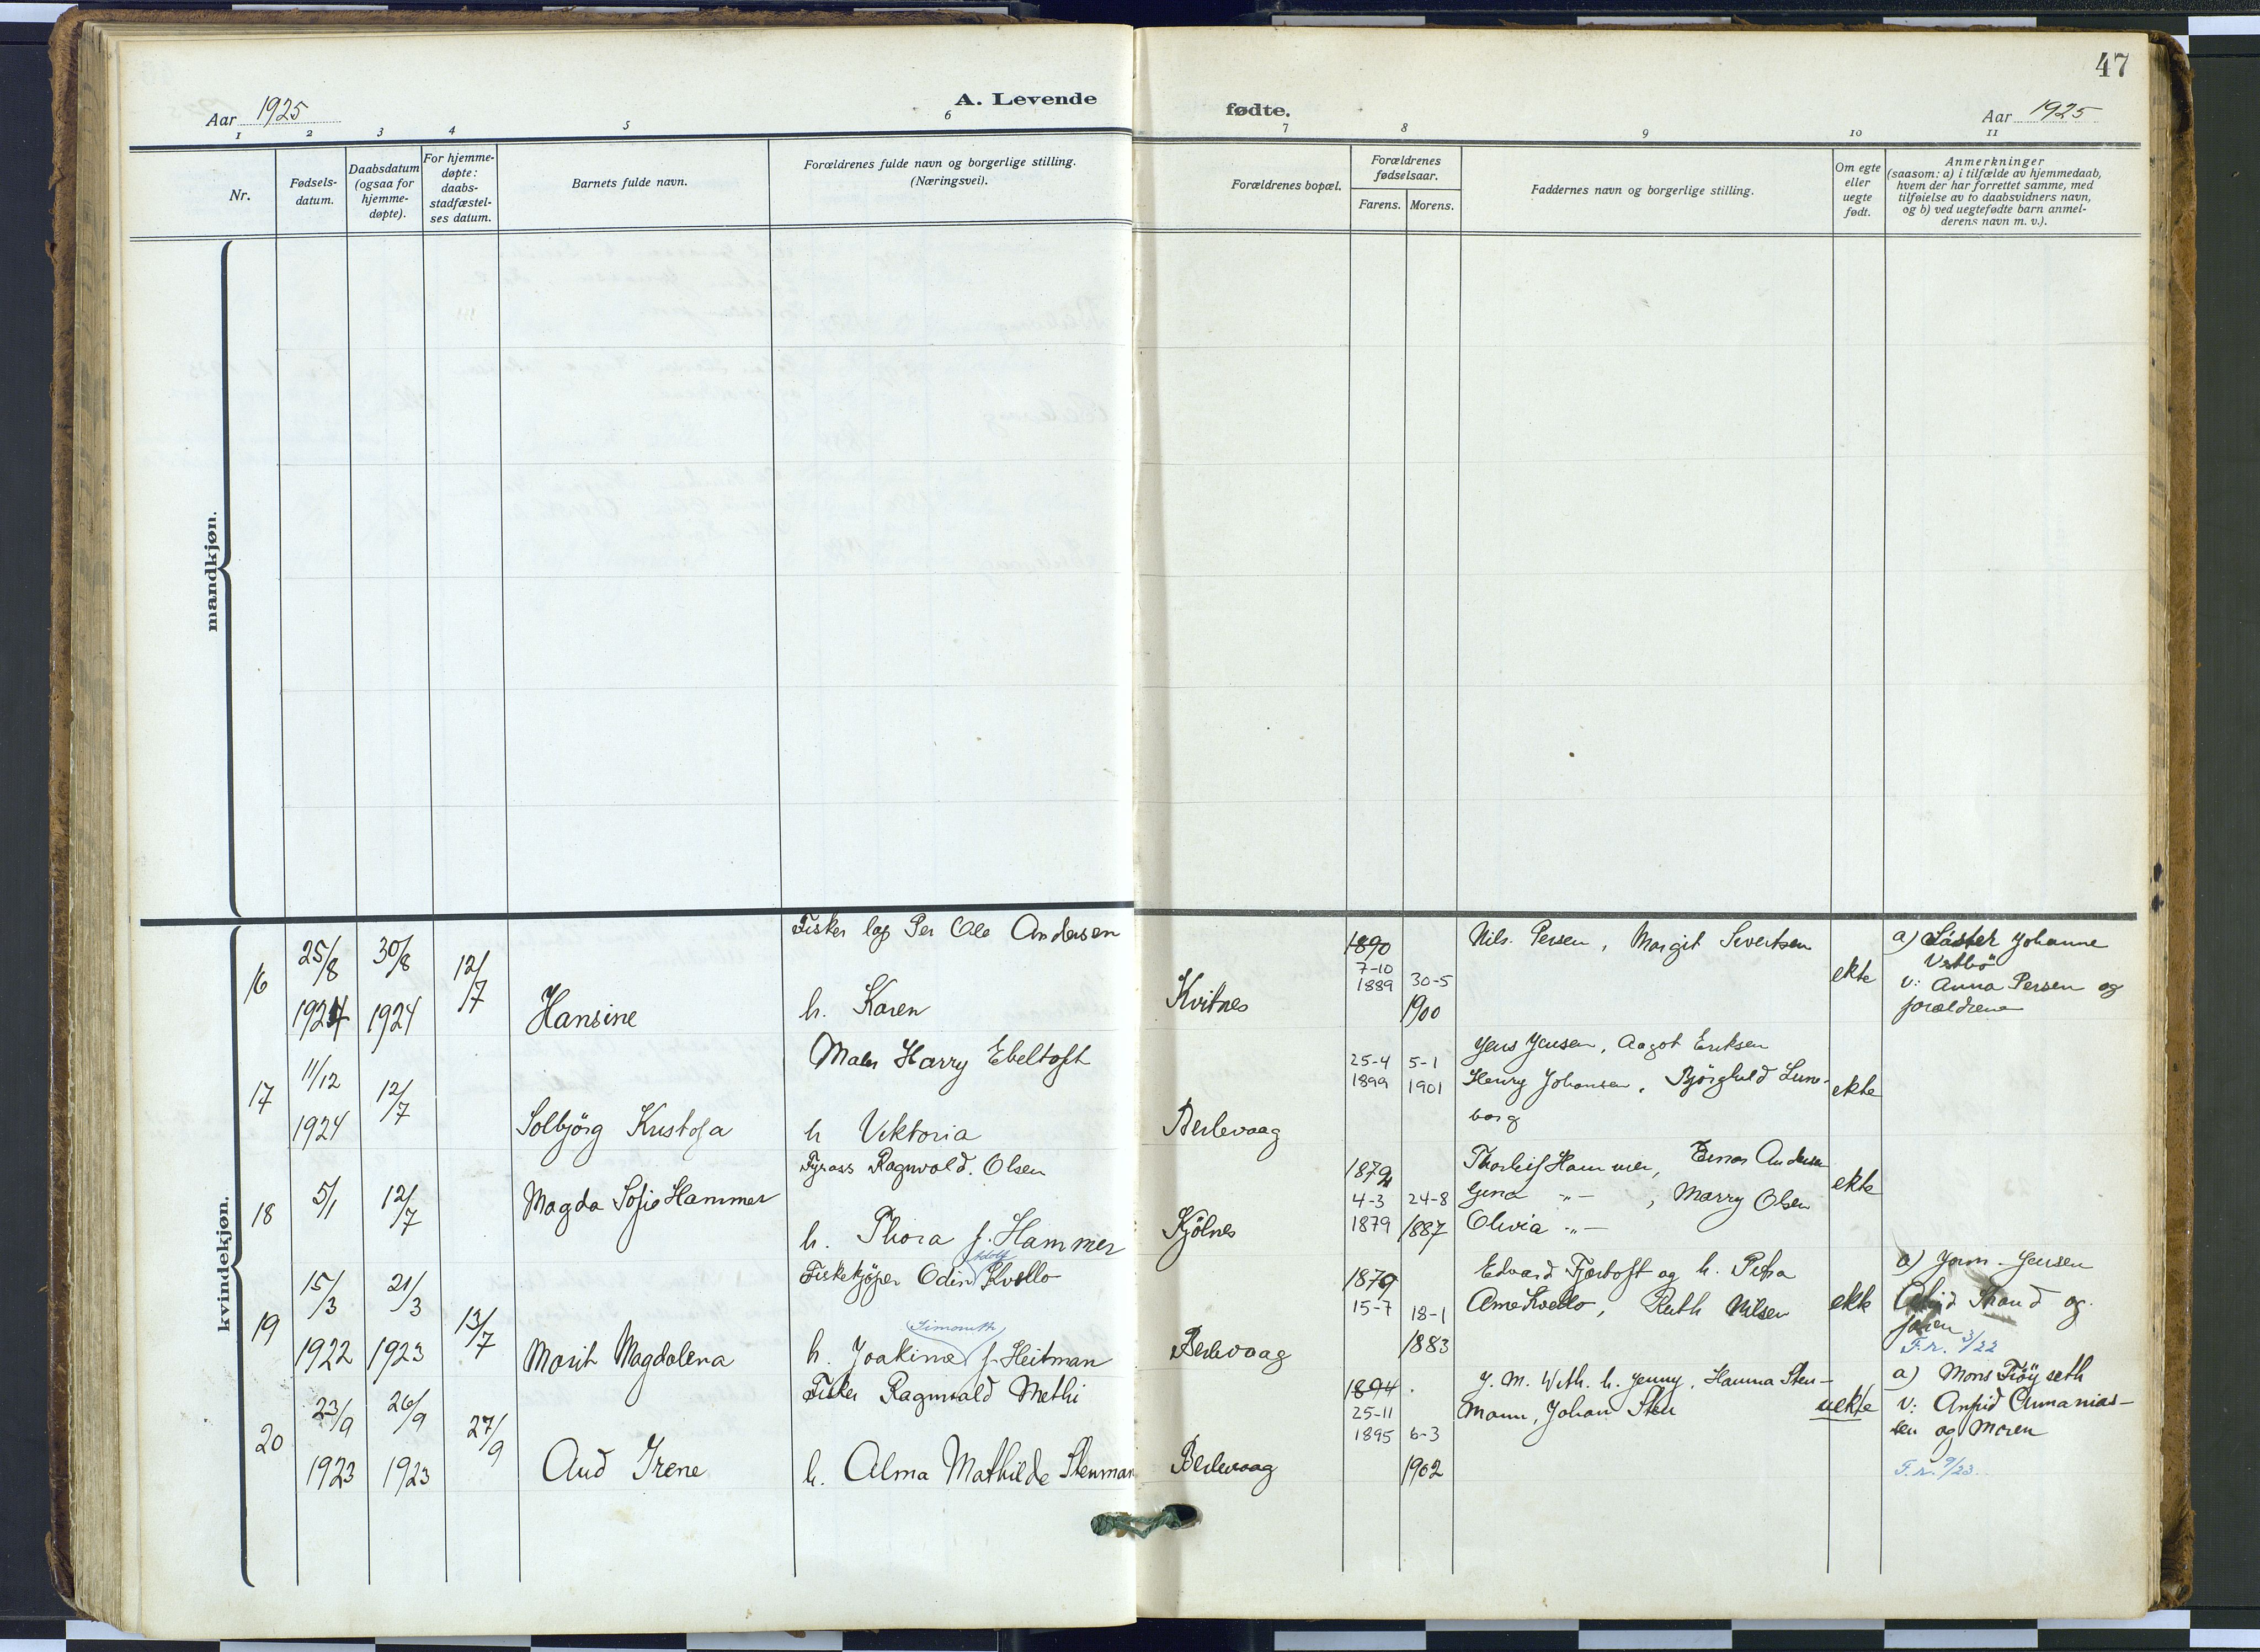 47
Aar 1925
A. Levende
fødte.
Aar 1925
1 2 3 4 5 6 7 8 9 10 11
Nr.
Fødsels-
datum.
Daabsdatum
(ogsaa for
hjemme-
døpte).
For hjemme-
døpte:
daabs-
stadfæstel-
ses datum.
Barnets fulde navn.
Forældrenes fulde navn og borgerlige stilling.
(Næringsvei).
Forældrenes bopæl.
Forældrenes
fødselsaar.
Farens. Morens.
Faddernes navn og borgerlige stilling.
Om egte
eller
uegte
født.
Anmerkninger
(saasom: a) i tilfælde av hjemmedaab,
hvem der har forrettet samme, med
tilføielse av to daabsvidners navn,
og b) ved uegtefødte barn anmel-
derens navn m. v.).
mandkjøn.
kvindekjøn.
16
25/8
1924
30/8
1924
12/7
Hansine
Fisker lap Per Ole Andersen
h. Karen
Kvitnes
1890
7-10
1889
30-5
1900
Nils Persen, Margit Sivertsen
ekte
a) Söster Johanne
Vestbö
v: Anna Persen og
forældrene
17
11/12
1924
12/7
Solbjörg Kristofa
Maler Harry Ebeltoft
h Viktoria
Berlevaag
25-4
1899
5-1
1901
Jens Jensen, Aagot Eriksen
Henry Johansen, Bjørghild Lune-
borg
ekte
18
5/1
12/7
Magda Sofie Hammer
Fyrass Ragnvald. Olsen
h. Thora f. Hammer
Kjölnes
1879
4-3
1879
24-8
1887
Thorleif Hammer, Einar Andersen
Gina -"- , Marry Olsen
Olivia -"-
ekte
19
15/3
1922
21/3
1923
13/7
Marit Magdalena
Fiskekjöper Odin Adolf Kvello
Simonette
h. Joakime f. Heitman
Berlevaag
1879
15-7
18-1
1883
Edvard Fjørtoft og h. Petra
Arne Kvello, Ruth Nilsen
ekte
a) Jorm. Jensen
Strand og
F.r. 3/22
20
23/9
1923
26/9
1923
27/9
Aud Irene
Fisker Ragnvald Methi
h. Alma Mathilde Stenman
Berlevaag
1894
25-11
1895
6-3
1902
J. M. With. h. Jenny, Hanna Sten-
mann, Johan Sten
uekte
a) Mons Fröyseth
v: Arnfid Ananias-
sen og Moren
F.r. 9/23.